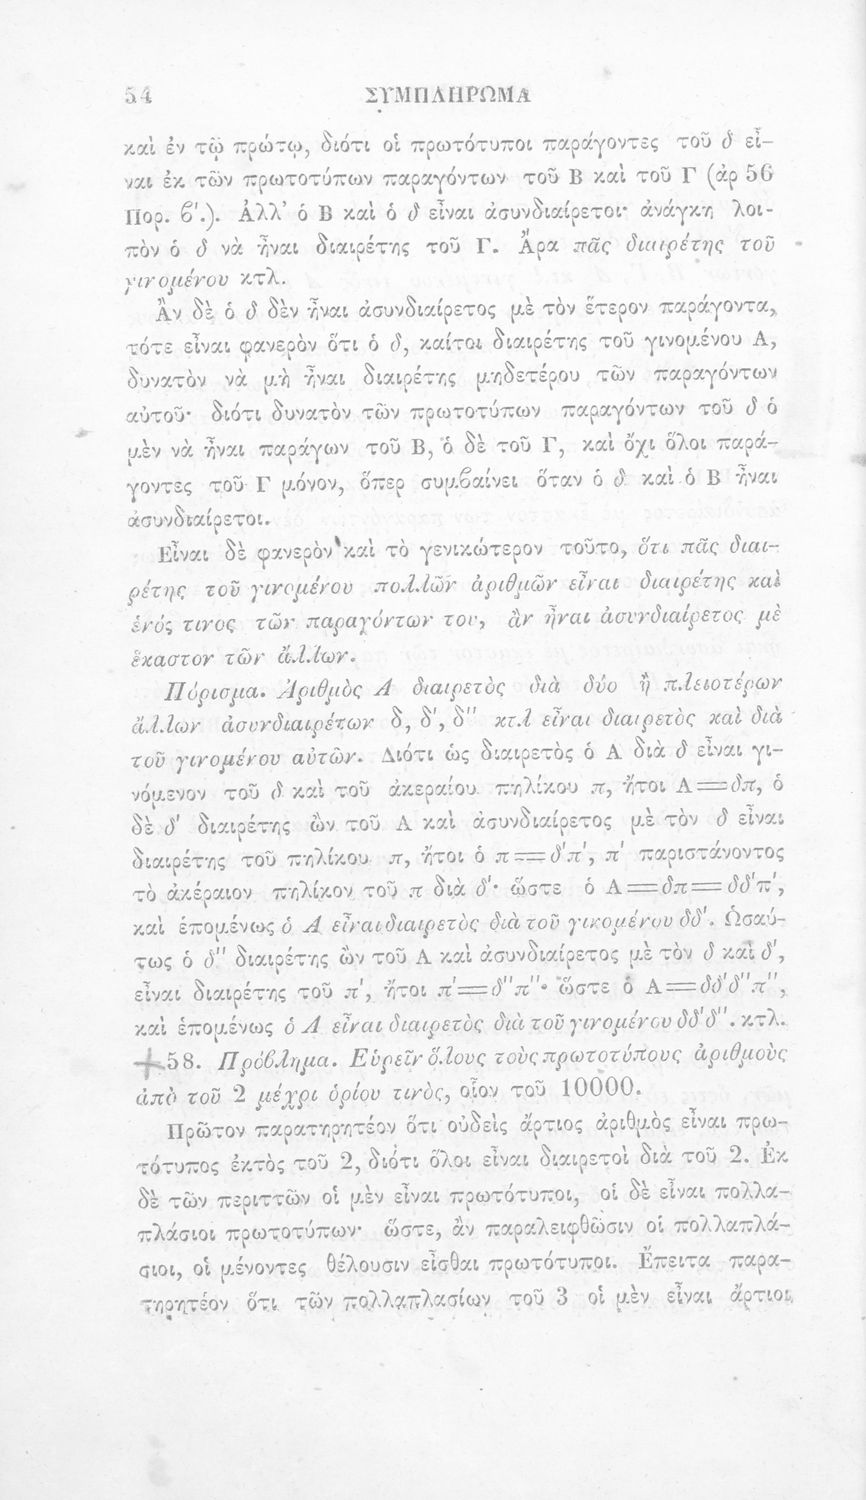 54 ΣΥΜΠΛΗΡΩΜΑ
καὶ ἐν τῷ πρώτῳ, διότι οἱ πρωτότυποι παράγοντες τοῦ δ εἶ-
ναι ἐκ τῶν πρωτοτύπων παραγόντων τοῦ Β καὶ τοῦ Γ (ἀρ 56
Πορ. β'.). Ἀλλ' ὁ Β καὶ ὁ δ εἶναι ἀσυνδιαίρετοι· ἀνάγκη λοι-
πὸν ὁ δ νὰ ἦναι διαιρέτης τοῦ Γ. Ἄρα πᾶς διαιρέτης τοῦ
γινομένου κτλ.
Ἂν δὲ ὁ δ δὲν ἦναι ἀσυνδιαίρετος μὲ τὸν ἕτερον παράγοντα,
τότε εἶναι φανερὸν ὅτι ὁ δ, καίτοι διαιρέτης τοῦ γινομένου Α,
δυνατὸν νὰ μὴ ἦναι διαιρέτης μηδετέρου τῶν παραγόντων
αὐτοῦ· διότι δυνατὸν τῶν πρωτοτύπων παραγόντων τοῦ δ ὁ
μὲν νὰ ἦναι παράγων τοῦ Β, ὁ δὲ τοῦ Γ, καὶ ὄχι ὅλοι παρά-
γοντες τοῦ Γ μόνον, ὅπερ συμβαίνει ὅταν ὁ δ καὶ ὁ Β ἦναι
ἀσυνδιαίρετοι.
Εἶναι δὲ φανερὸν καὶ τὸ γενικώτερον τοῦτο, ὅτι πᾶς διαι-
ρέτης τοῦ γινομένου πολλῶν ἀριθμῶν εἶναι διαιρέτης καὶ
ἑνός τινος τῶν παραγόντων του, ἂν ἦναι ἀσυνδιαίρετος μὲ
ἕκαστον τῶν ἄλλων.
Πόρισμα. Ἀριθμὸς Α διαιρετὸς διὰ δύο ἢ πλειοτέρων
ἄλλων ἀσυνδιαιρέτων δ, δ', δ'' κτλ εἶναι διαιρετὸς καὶ διὰ
τοῦ γινομένου αὐτῶν. Διότι ὡς διαιρετὸς ὁ Α διὰ δ εἶναι γι-
νόμενον τοῦ δ καὶ τοῦ ἀκεραίου πηλίκου π, ἤτοι Α=δπ, ὁ
δὲ δ' διαιρέτης ὢν τοῦ Α καὶ ἀσυνδιαίρετος μὲ τὸν δ εἶναι
διαιρέτης τοῦ πηλίκου π, ἤτοι ὁ π=δ'π', π' παριστάνοντος
τὸ ἀκέραιον πηλίκον τοῦ π διὰ δ'· ὥστε ὁ Α=δπ=δδ'π',
καὶ ἑπομένως ὁ Α εἶναι διαιρετὸς διὰ τοῦ γινομένου δδ'. Ὡσαύ-
τως ὁ δ'' διαιρέτης ὢν τοῦ Α καὶ ἀσυνδιαίρετος μὲ τὸν δ καὶ δ',
εἶναι διαιρέτης τοῦ π', ἤτοι π'=δ''π''· ὥστε ὁ Α=δδ'δ''π'',
καὶ ἑπομένως ὁ Α εἶναι διαιρετὸς διὰ τοῦ γινομένου δδ'δ''. κτλ.
58. Πρόβλημα. Εὑρεῖν ὅλους τοὺς πρωτοτύπους ἀριθμοὺς
ἀπὸ τοῦ 2 μέχρι ὁρίου τινὸς, οἷον τοῦ 10000.
Πρῶτον παρατηρητέον ὅτι οὐδεὶς ἄρτιος ἀριθμὸς εἶναι πρω-
τότυπος ἐκτὸς τοῦ 2, διότι ὅλοι εἶναι διαιρετοὶ διὰ τοῦ 2. Ἐκ
δὲ τῶν περιττῶν οἱ μὲν εἶναι πρωτότυποι, οἱ δὲ εἶναι πολλα-
πλάσιοι πρωτοτύπων· ὥστε, ἂν παραλειφθῶσιν οἱ πολλαπλά-
σιοι, οἱ μένοντες θέλουσιν εἶσθαι πρωτότυποι. Ἔπειτα παρα-
τηρητέον ὅτι τῶν πολλαπλασίων τοῦ 3 οἱ μὲν εἶναι ἄρτιοι,